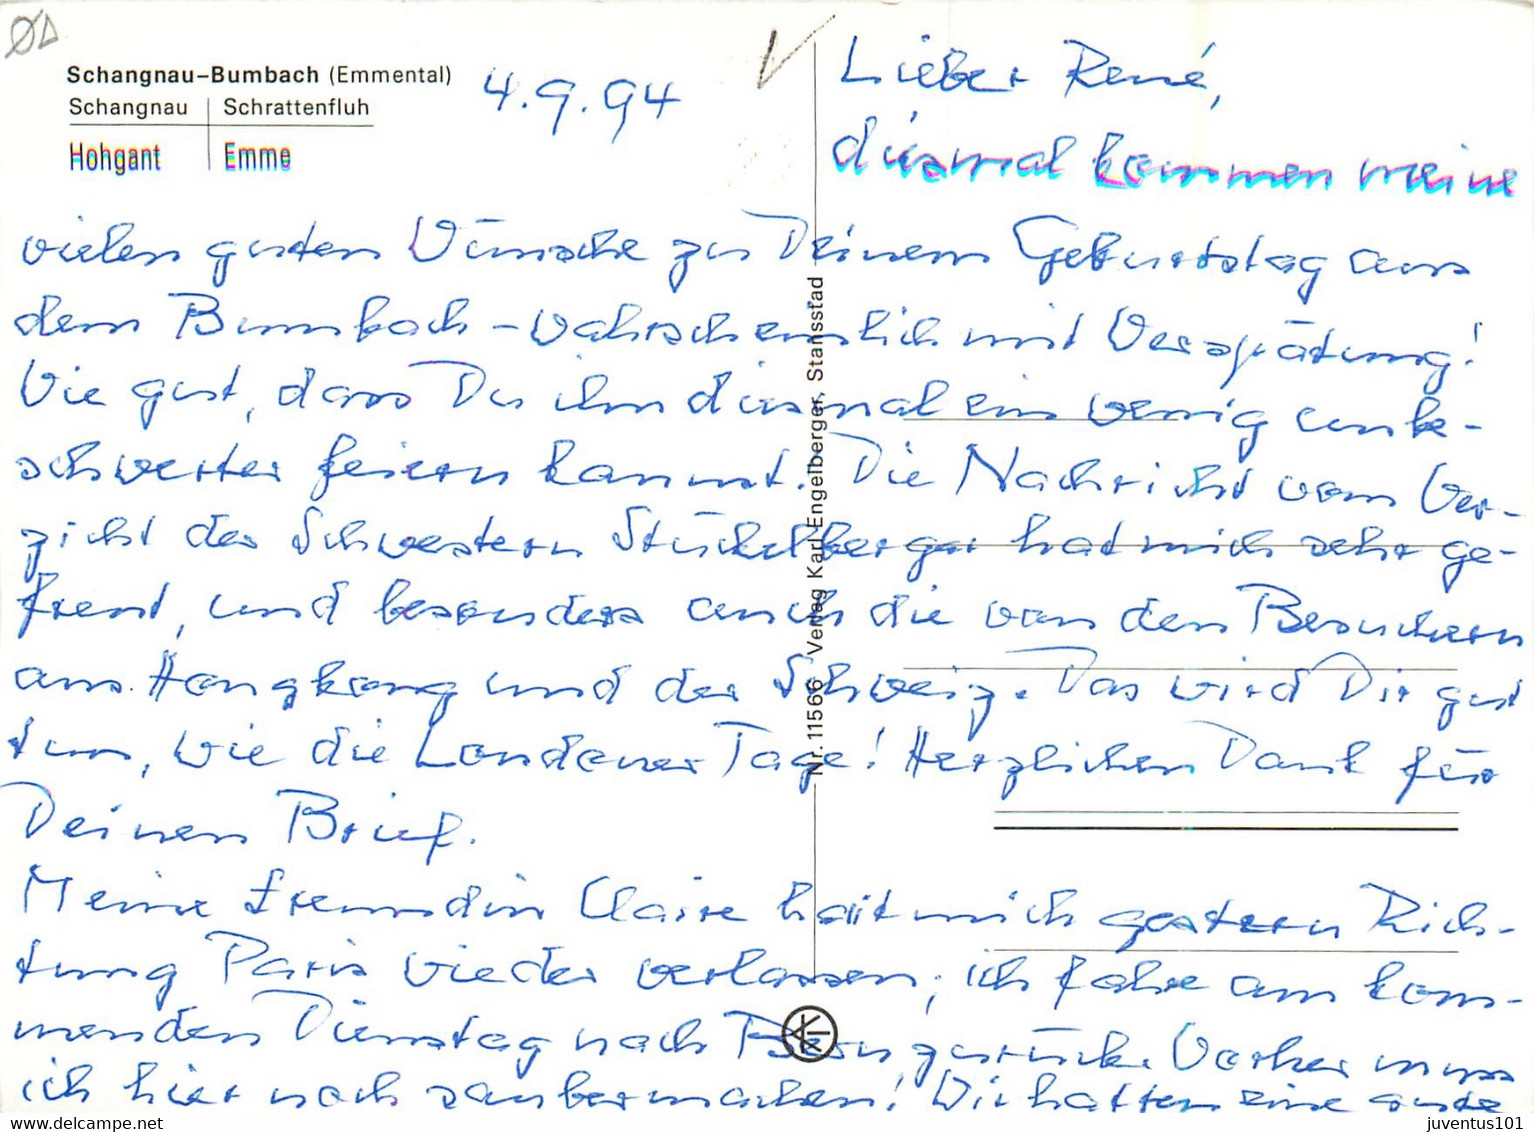 Schangnau-Bumbach (Emmental)
Schangnau | Schrattenfluh
Hohgant | Emme
4.9.94
Lieber René,
diesmal kommen meine
vielen guten Wünsche zu Deinem Geburtstag aus
dem Bumbach - wahrscheinlich mit Verspätung!
Wie gut, dass Du ihn diesmal ein wenig unbe-
schwerter feiern kannst. Die Nachricht vom Ver-
zicht der Schwestern Stückelberger hat mich sehr ge-
freut, und besonders auch die von den Besuchern
aus Hongkong und der Schweiz. Das wird Dir gut
tun, wie die Londoner Tage! Herzlichen Dank für
Deinen Brief.
Meine Freundin Claire hat mich gestern Rich-
tung Paris wieder verlassen; ich fahre am kom-
menden Dienstag nach Bern zurück. Vorher muss
ich hier noch saubermachen! Wir hatten eine gute
Nr. 11566 Verlag Karl Engelberger, Stansstad
juventus101